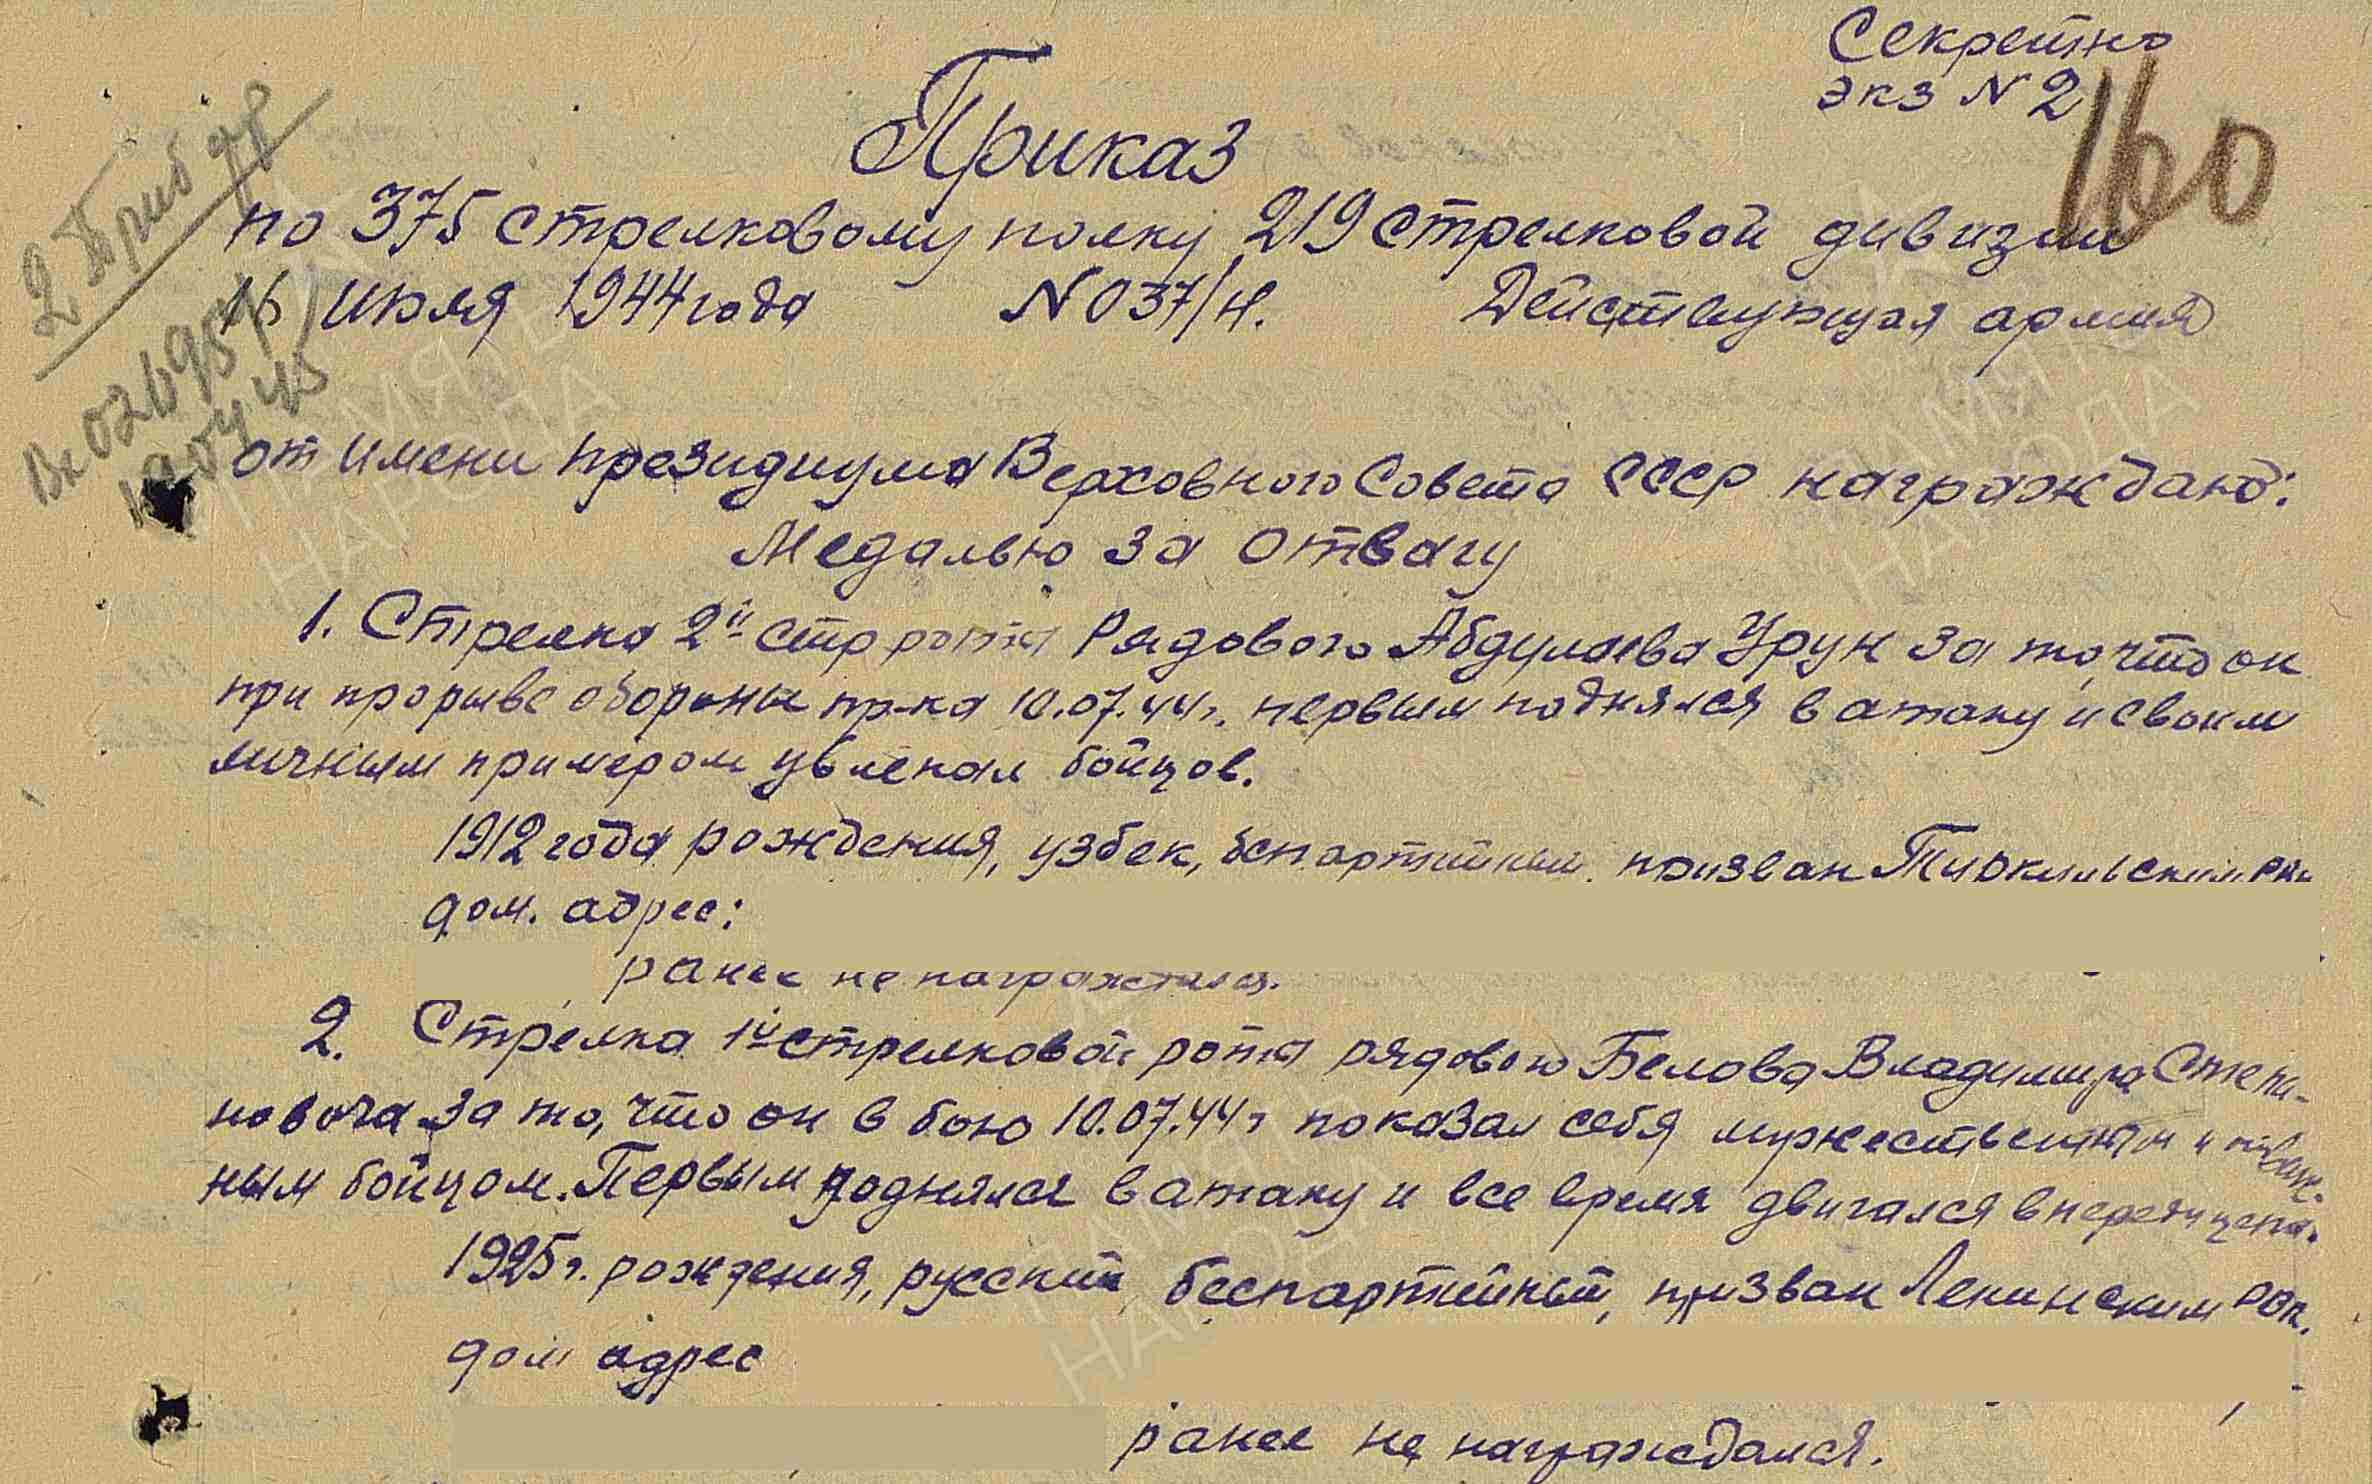 Секретно
экз N 2
160
Приказ
по 375 стрелковому полку 219 стрелковой дивизии
16 июля 1944 года N 037/н. Действующая армия
2 Приб ф
Вх 026957
19 04 45
от имени президиума Верховного Совета СССР награждаю:
Медалью за отвагу
1. Стрелка 2й стр роты Рядового Абдулаева Урун за то, что он
при прорыве обороны пр-ка 10.07.44г. первым поднялся в атаку и своим
личным примером увлекал бойцов.
1912 года рождения, узбек, беспартийный, призван рвк
дом. адрес:
ранее не награждался.
2. Стрелка 1й стрелковой роты рядового Белова Владимира Степа-
новича за то, что он в бою 10.07.44г показал себя мужественным и отваж-
ным бойцом. Первым поднялся в атаку и все время двигался впереди цепи.
1925г. рождения, русский беспартийный, призван Ленинским рвк.
дом адрес
ранее не награждался.
ПАМЯТЬ
НАРОДА
ПАМЯТЬ
НАРОДА
ПАМЯТЬ
НАРОДА